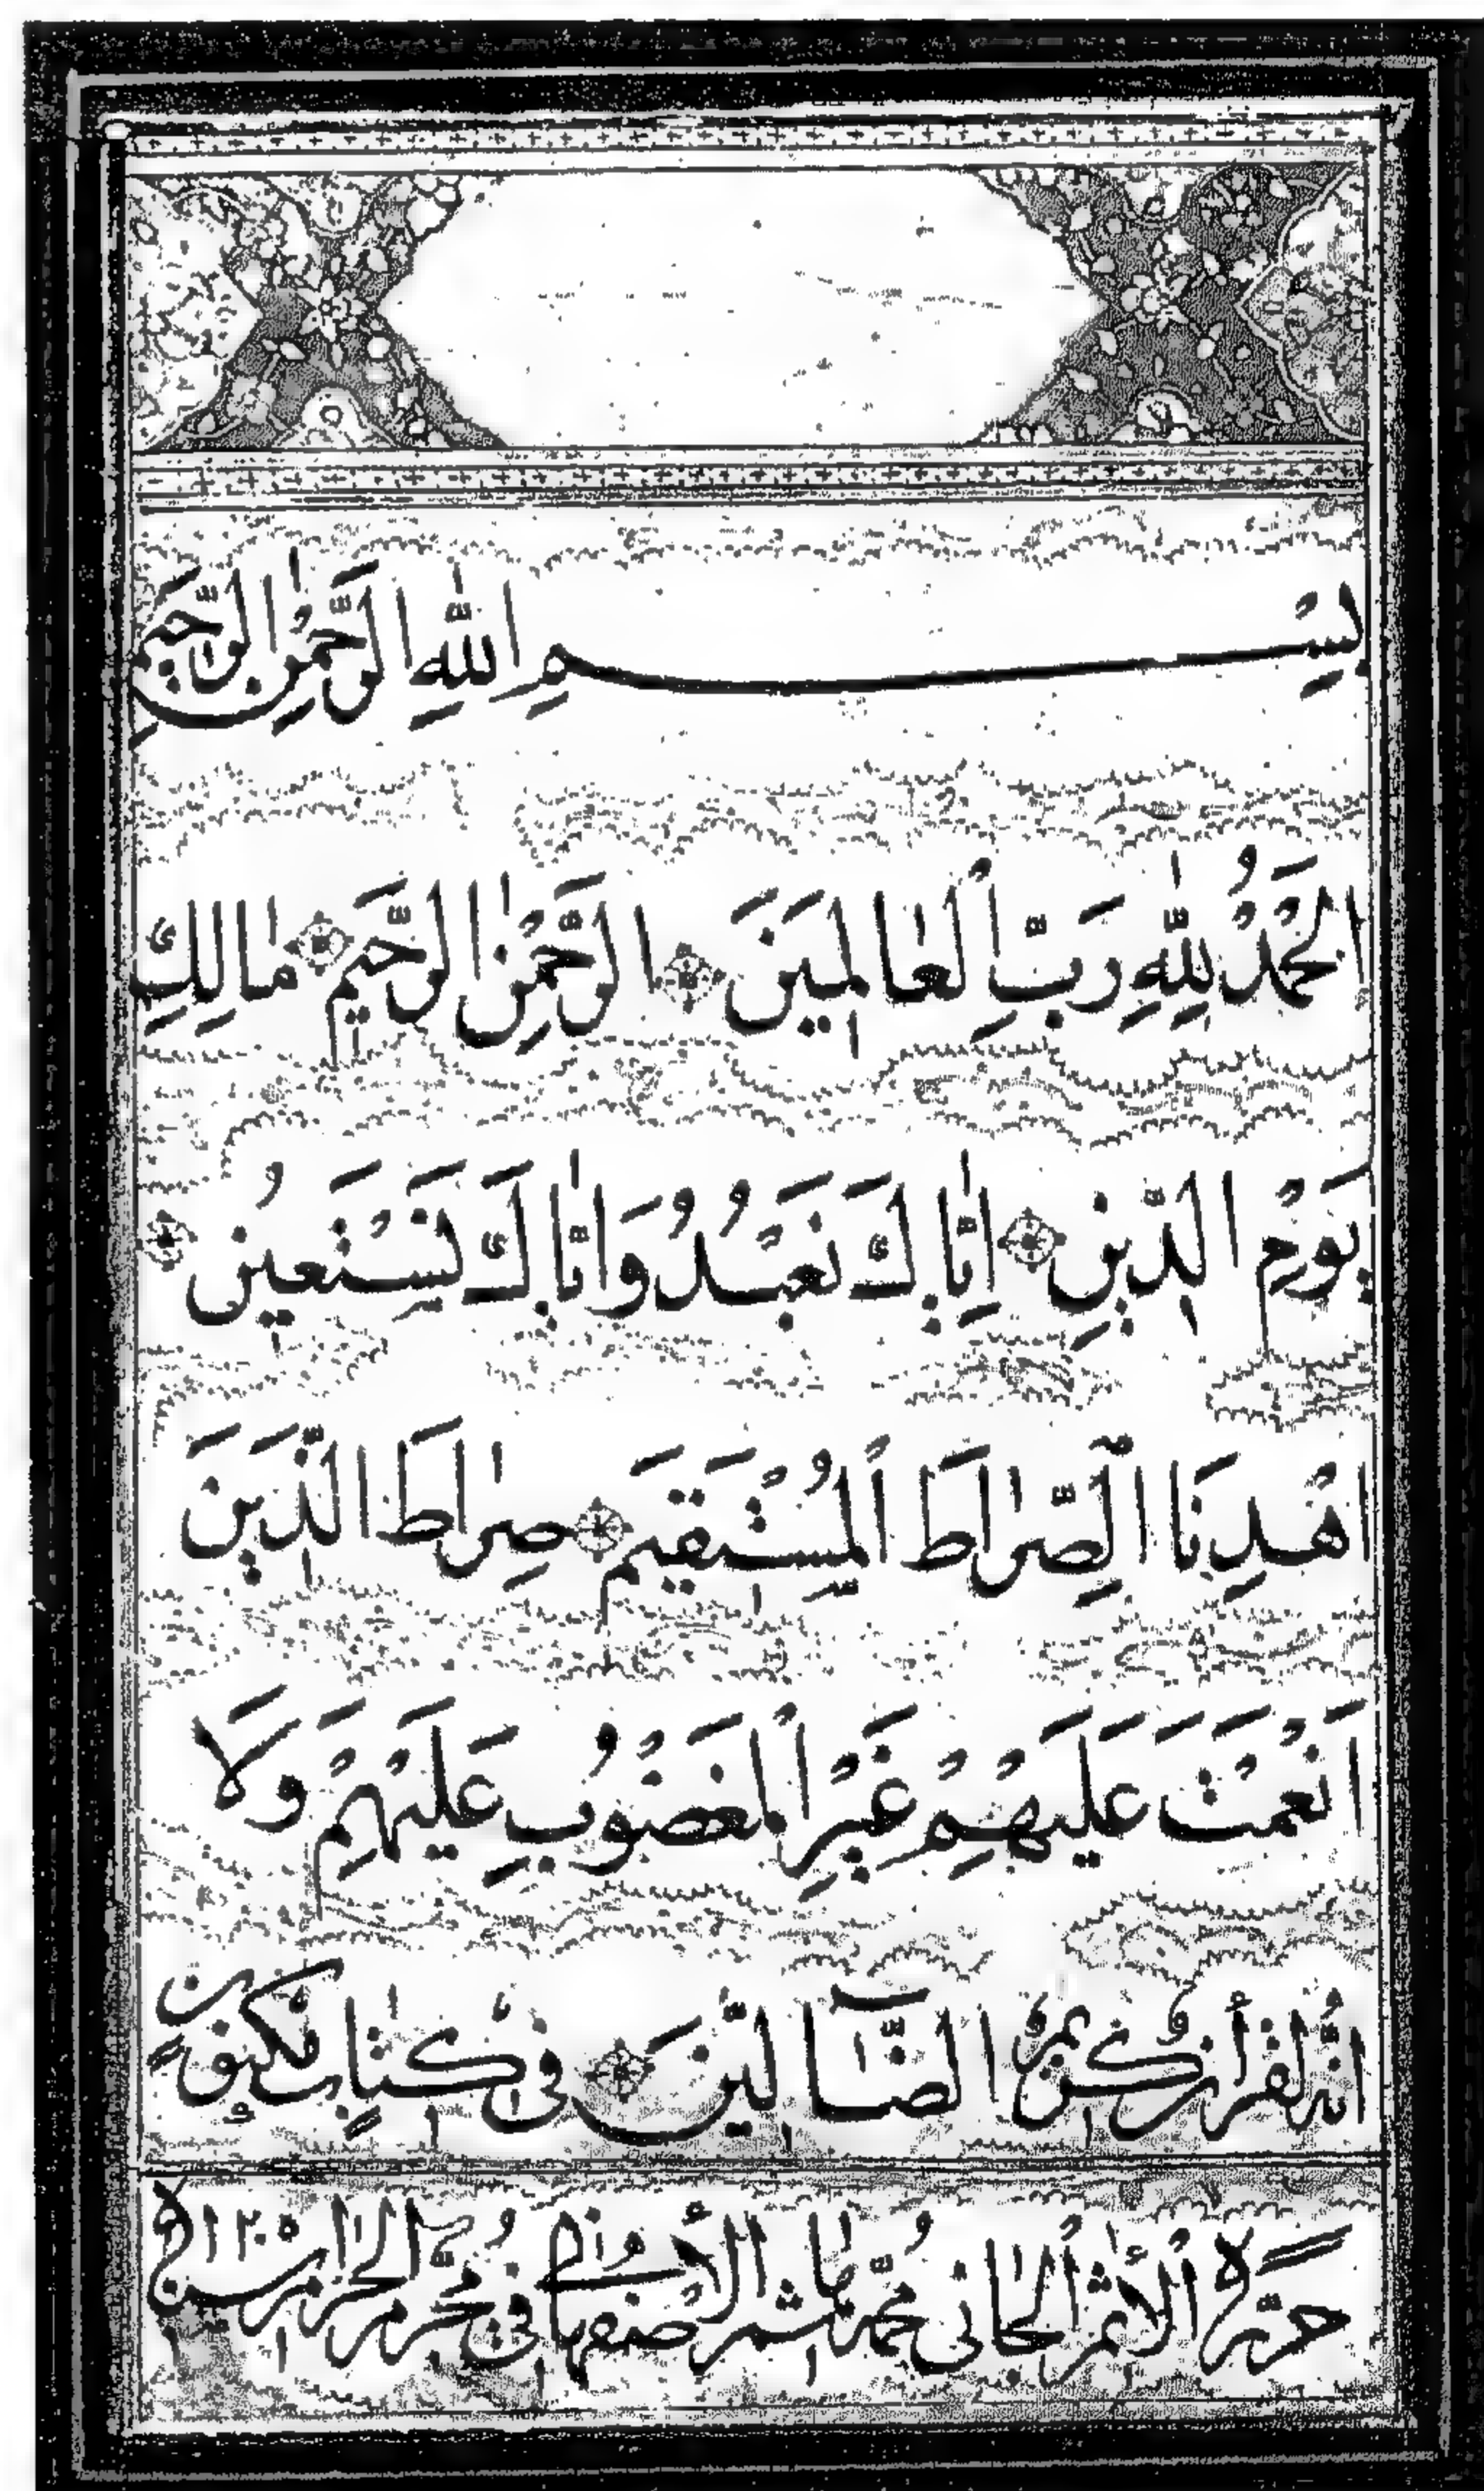 بِسْمِ اللّٰهِ الرَّحْمٰنِ الرَّحيمِ
اَلْحَمْدُ لِلّٰهِ رَبِّ الْعٰالَمينَ اَلرَّحْمٰنِ الرَّحيمِ مٰالِكِ
يَوْمِ الدّينِ اِيّٰاكَ نَعْبُدُ وَاِيّٰاكَ نَسْتَعينُ
اِهْدِنَا الصِّرٰاطَ الْمُسْتَقيمَ صِرٰاطَ الَّذينَ
اَنْعَمْتَ عَلَيْهِمْ غَيْرِ الْمَغْضُوبِ عَلَيْهِمْ وَلَا
اِنَّهُ لَقُرْآنٌ كَريمٌ الضّٰالّينَ في كِتٰابٍ مَكْنُونٍ
حرّره الأثم الجاني محمّد هاشم الأصفهاني في محرّم الحرام سنة ١٢٠٥